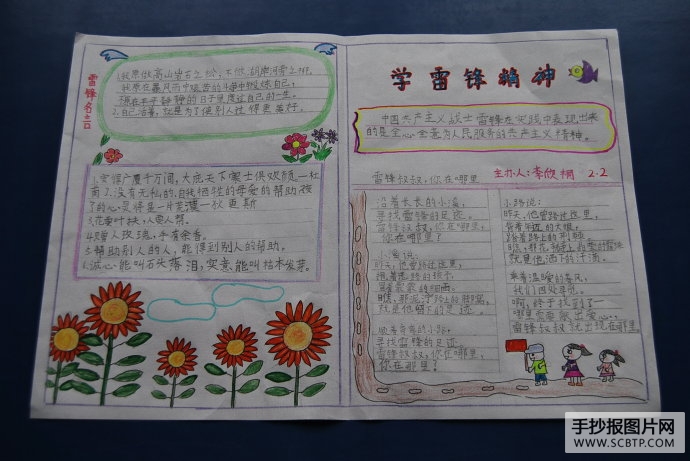 雷锋名言
1.我愿做高山岩石之松,不做湖岸河旁之柳。
我愿在暴风雨中艰苦的斗争中锻炼自己,
不愿在平平静静的日子里度过自己的一生。
2.自己活着,就是为了使别人过得更美好。
1.安得广厦千万间,大庇天下寒士俱欢颜—杜
甫 2.没有无私的,自我牺牲的母爱的帮助,孩
了的心灵将是一片荒漠—狄更斯
3.花要叶扶,人要人帮。
4.赠人玫瑰,手有余香。
5.帮助别人的人,能得到别人的帮助。
6.诚心能叫石头落泪,实意能叫枯木发芽。
学雷锋精神
中国共产主义战士雷锋在实践中表现出来
的是全心全意为人民服务的共产主义精神。
主办人:李欣桐 2.2
雷锋叔叔,你在哪里
沿着长长的小溪,
寻找雷锋的足迹。
雷锋叔叔,你在哪里,
你在哪里?
小溪说:
昨天,他曾路过这里,
抱着迷路的孩子,
冒着蒙蒙的细雨。
瞧,那泥泞路上的脚窝,
就是他留下的足迹。
顺着弯弯的小路,
寻找雷锋的足迹。
雷锋叔叔,你在哪里,
你在哪里?
小路说:
昨天,他曾路过这里,
背着年迈的大娘,
踏着路上的荆棘。
瞧,那花瓣上晶莹的露珠,
就是他洒下的汗滴。
乘着温暖的春风,
我们四处寻觅。
啊,终于找到了—
哪里需要献出爱心,
雷锋叔叔就出现在哪里。
手抄报图片网
WWW.SCBTP.COM